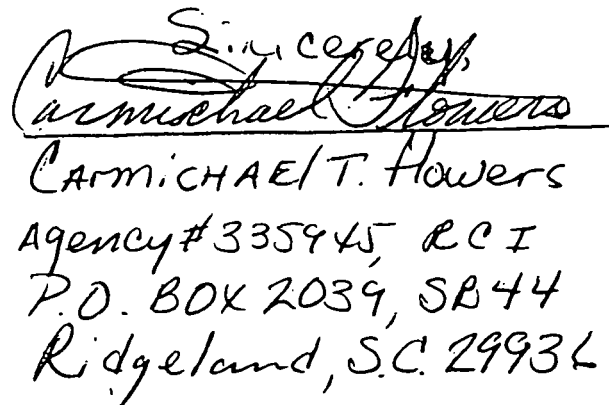 Sincerely,
Carmichael Flowers
CArmiCHAEl T. flowers
Agency # 335945, RCI
P.O. BOX 2039, SB44
Ridgeland, S.C. 29936